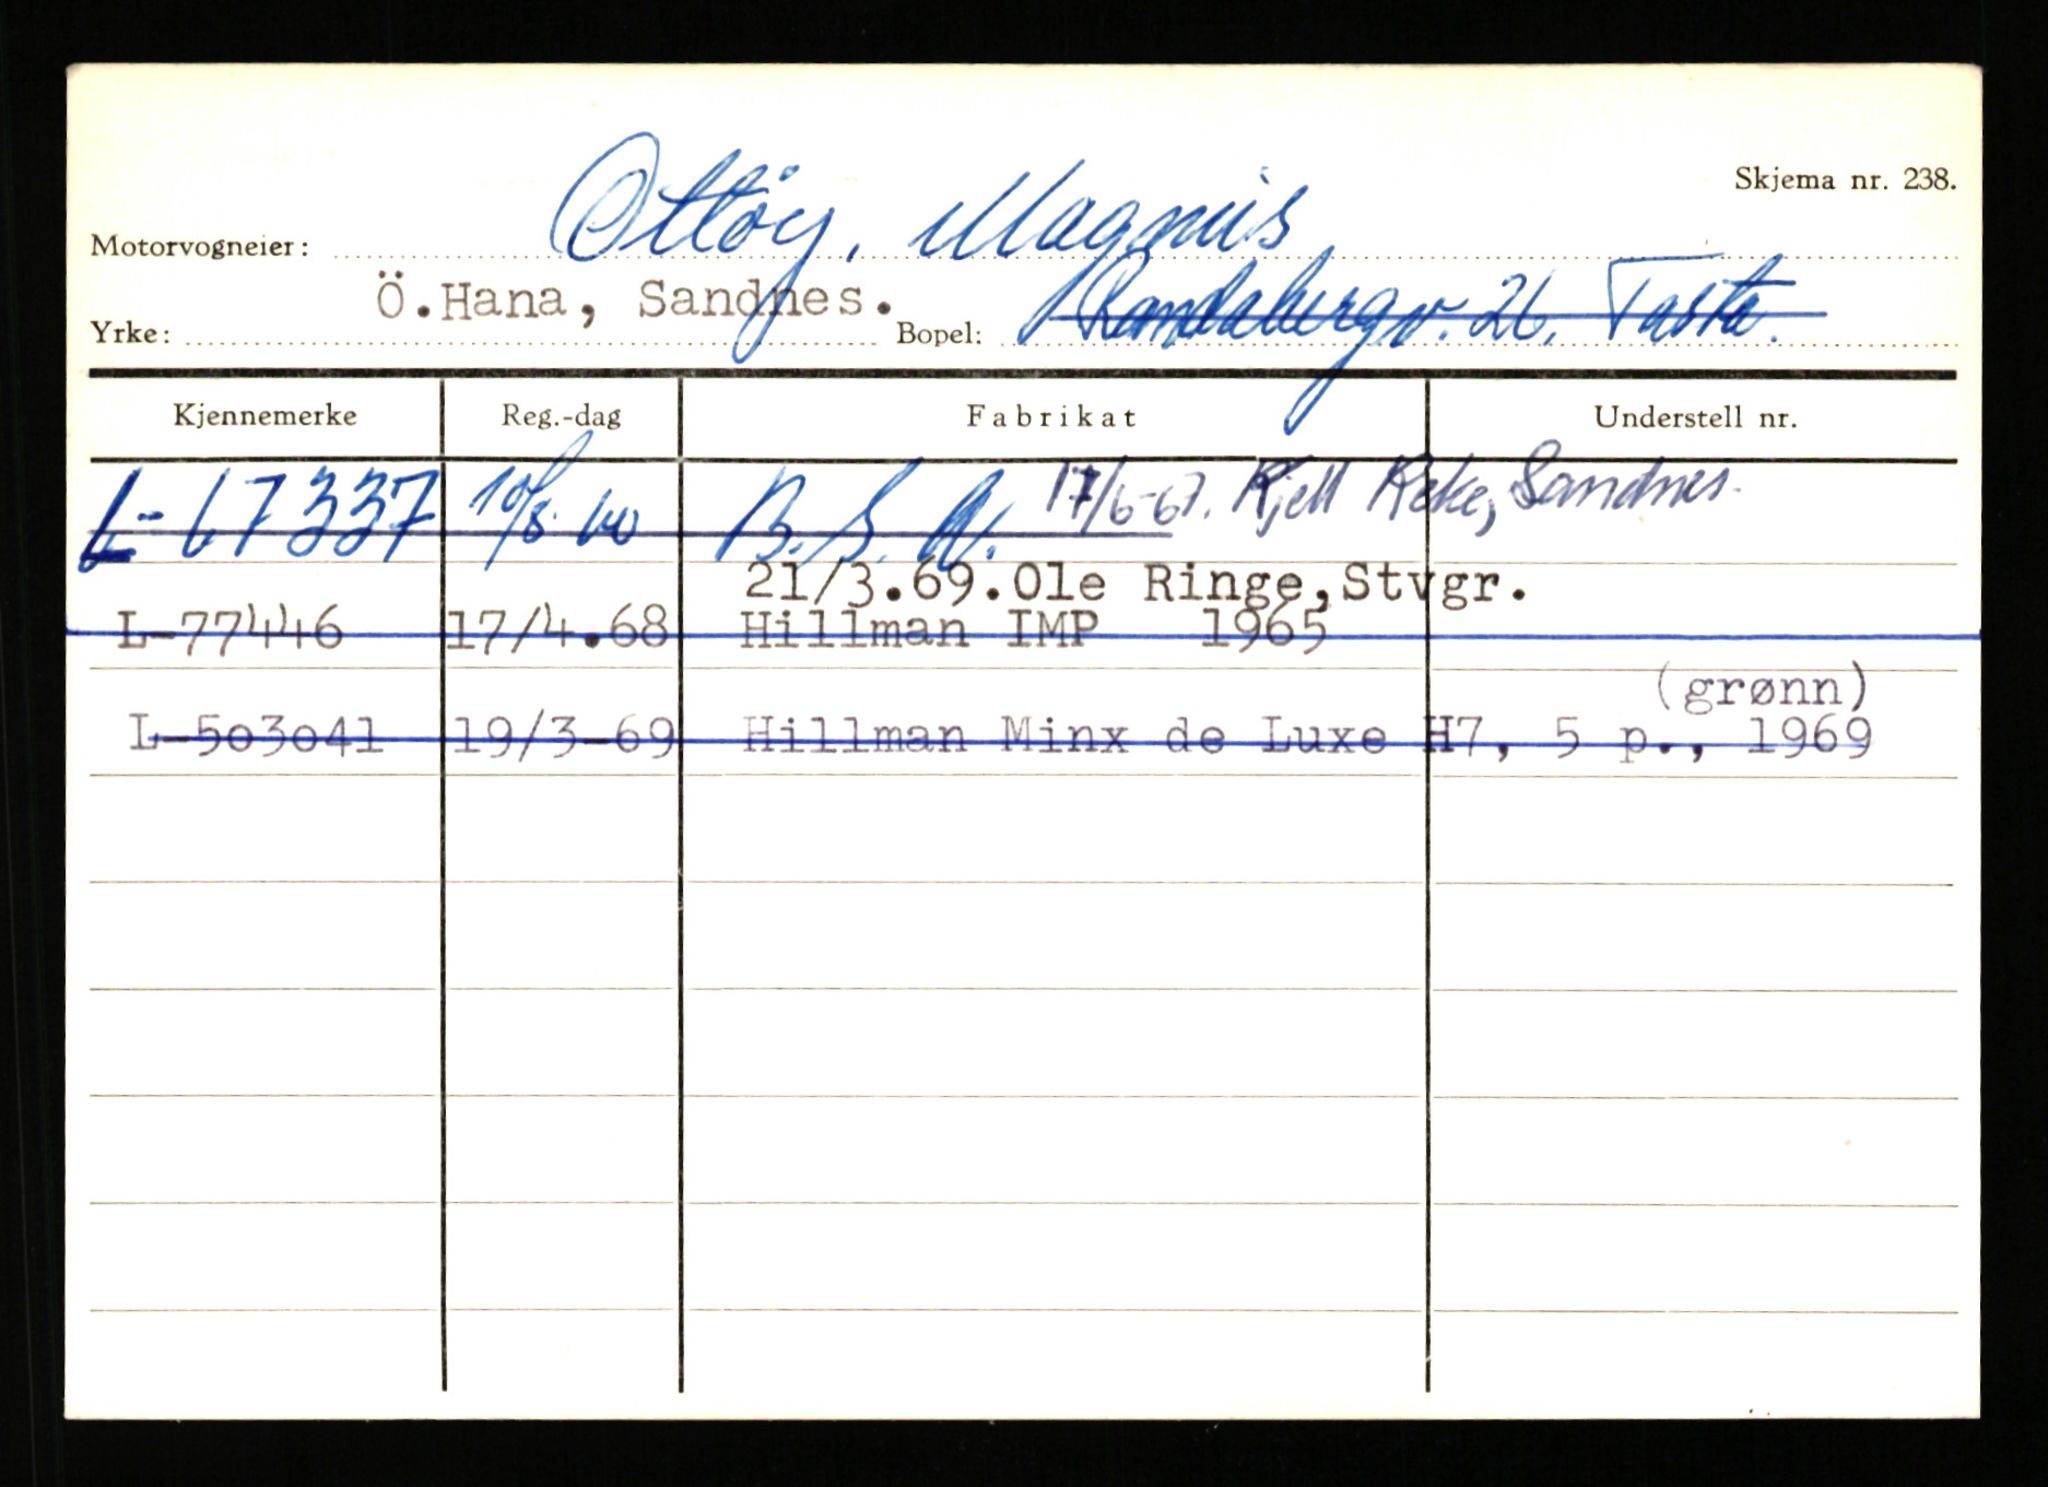 Skjema nr. 238.
Motorvogneier: Ottöy, Magnus
Ö.Hana, Sandnes.
Yrke: Bopel: Randabergv. 26, Tasta.
Kjennemerke Reg.-dag Fabrikat Understell nr.
L-67337 10/8.60 B.S.A. 17/6-67. Kjell Sandnes.
21/3.69.Ole Ringe,Stvgr.
L-77446 17/4.68 Hillman IMP 1965
(grønn)
L-503041 19/3-69 Hillman Minx de Luxe H7, 5 p., 1969